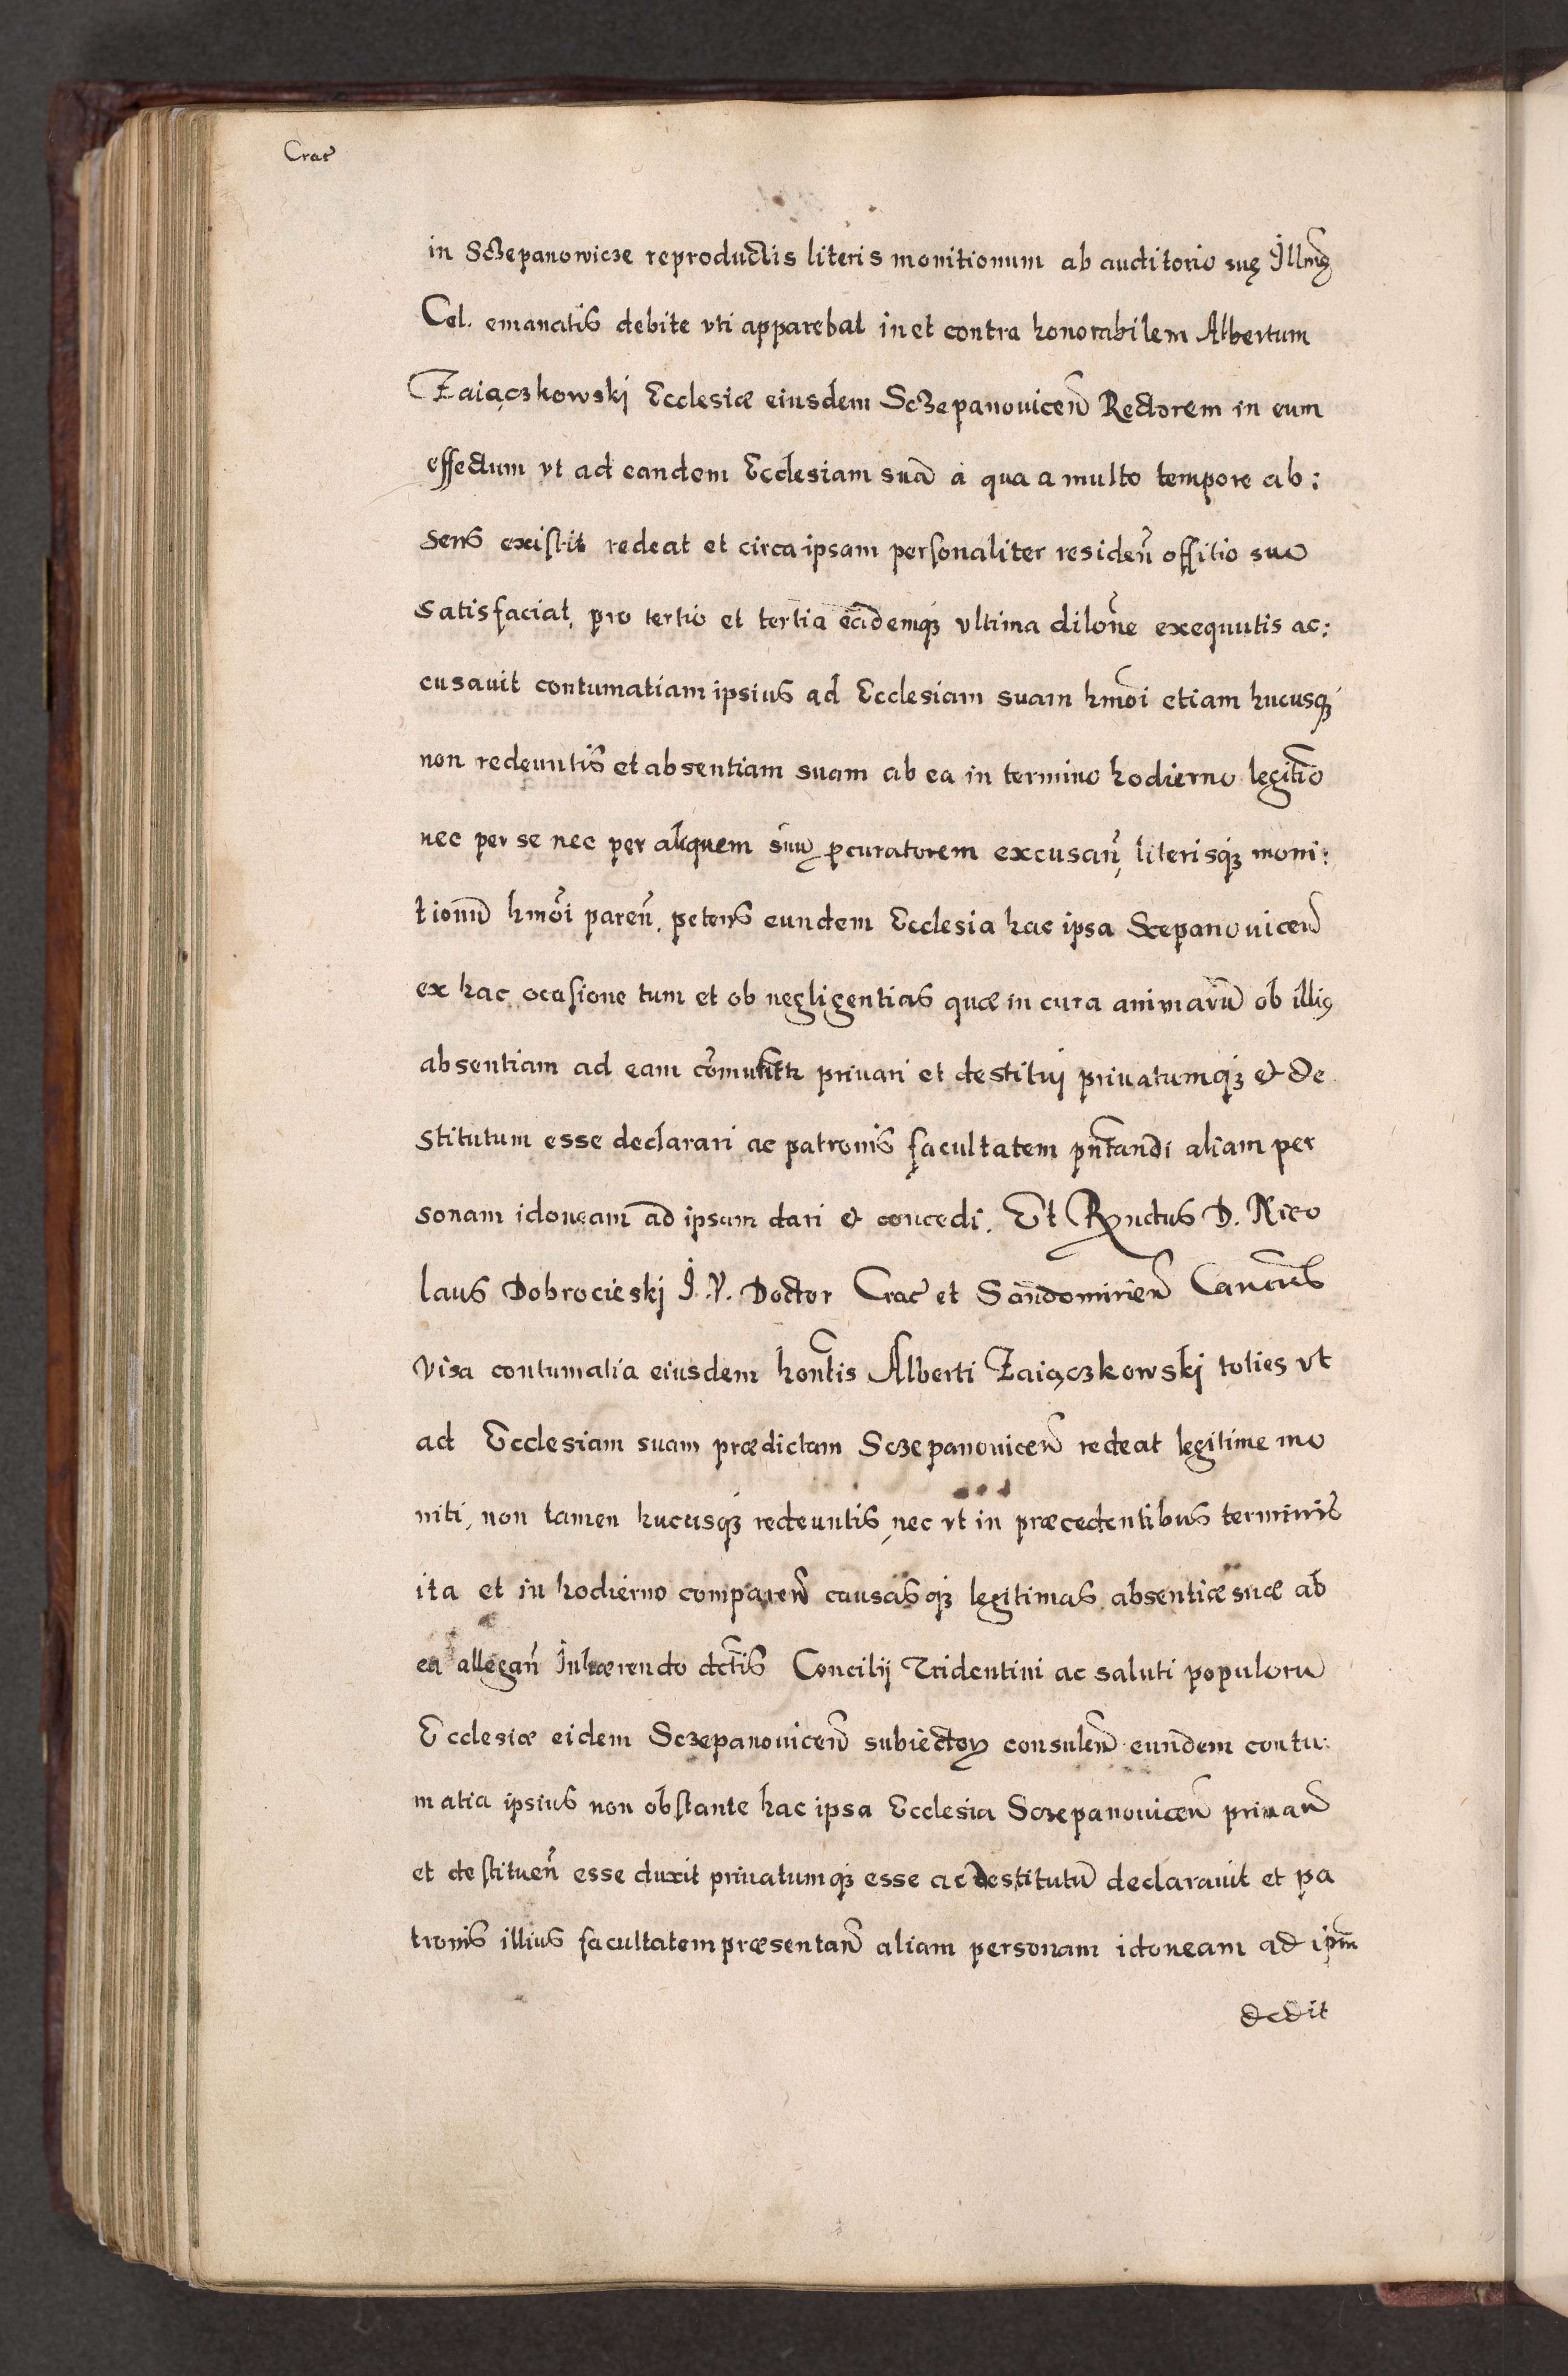 Crac̃
in Sczepanowicze reproductis literis monitionum ab auditorio suę Illmę
Cel. emanatis debite vti apparebat in et contra honorabilem Albertum
Zaiączkowskj Ecclesiæ eiusdem Sczepanouiceñ Rectorem in eum
effectum vt ad eandem Ecclesiam suã à qua a multo tempore ab:
sens existit redeat et circa ipsam personaliter resideñ offitio suo
satisfaciat, pro tertio et tertia eademqꝫ vltima dilone exequutis ac:
cusauit contumatiam ipsius ad Ecclesiam suam hmõi etiam hucusqꝫ
non redeuntis et absentiam suam ab ea in termino hodierno legitĩo
nec per se nec per aliquem suũ ꝓcuratorem excusañ, literisqꝫ moni:
tionũ hmõi pareñ, petens eundem Ecclesia hac ipsa Scepanouiceñ
ex hac ocasione tum et ob negligentias quæ in cura animarũ ob illiꝰ
absentiam ad eam
priuari et destituj priuatumqꝫ & de
stitutum esse declarari ac patronis facultatem pñtandi aliam per
sonam idoneam ad ipsam dari & concedi. Et Rꝟndus D. Nico
laus Dobrocieskj J. V. Doctor Crac̃ et Sandomirieñ Cancus
visa contumatia eiusdem hontis Alberti Zaiączkowskj toties vt
ad Ecclesiam suam prædictam Sczepanouiceñ redeat legitime mo
niti, non tamen hucusqꝫ redeuntis, nec vt in præcedentibus terminis
ita et in hodierno compareñ causasqꝫ legitimas absentiæ suæ ab
ea allegañ Inhærendo dctis Concilij Tridentini ac saluti populorũ
Ecclesiæ eidem Sczepanouiceñ subiectoꝝ consuleñ eundem contu:
matia ipsius non obstante hac ipsa Ecclesia Sczepanouiceñ priuañ
et destitueñ esse duxit priuatumqꝫ esse ac destitutũ declarauit et pa
tronis illius facultatem præsentañ aliam personam idoneam ad ipm̃
dedit